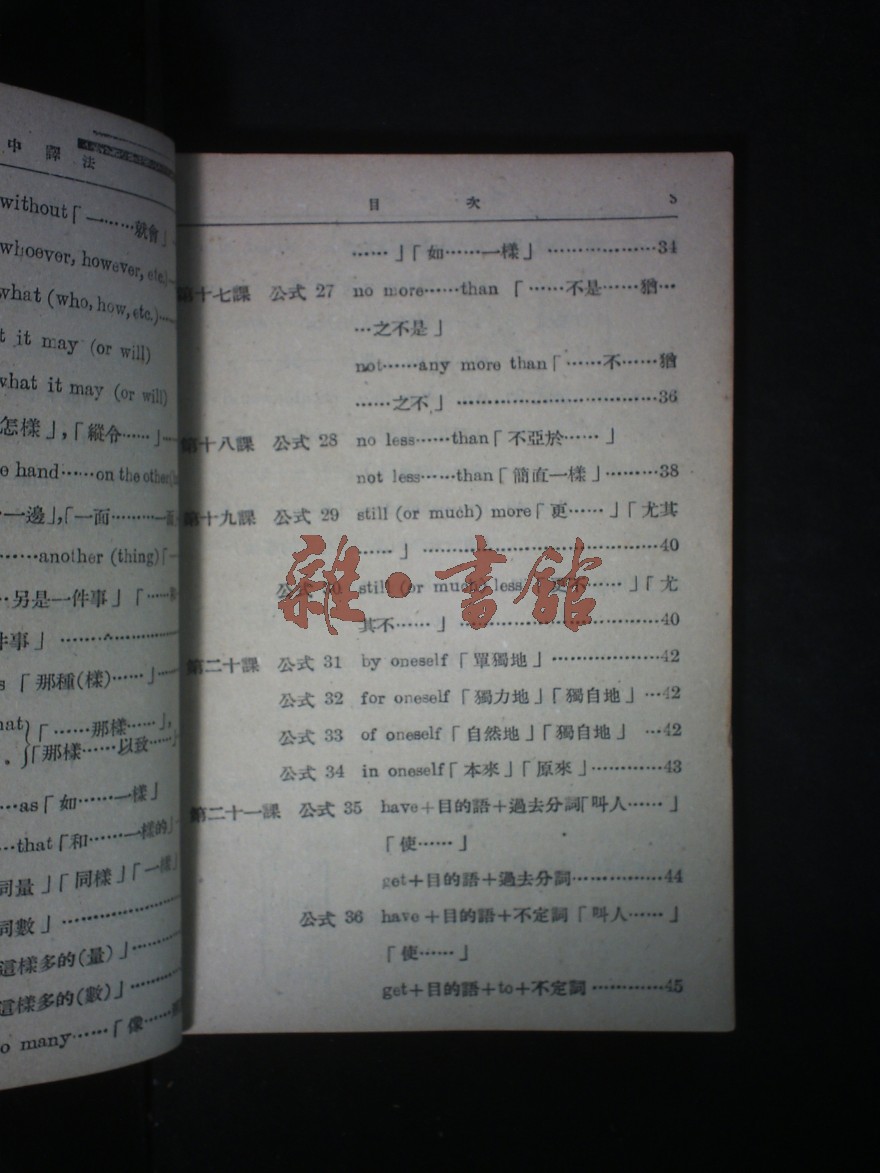 中譯法
without「一……就會」
whoever, however, etc.)
what (who, how, etc.)……
t it may (or will)
what it may (or will)
怎樣」,「縱令……」
e hand……on the other
一邊」,「一面………一面
……another (thing)「
…另是一件事」「……
件事」……………
s「那種(樣)……」
hat「……那樣……」,
「那樣……以致……」
…as「如……一樣」
…that「和……一樣的」
同量」「同樣」「一樣」
同數」……………
這樣多的(量)」………
這樣多的(數)」………
o many……「像……
目 次
……」「如……一樣」………………34
第十七課 公式 27 no more……than「……不是……猶…
…之不是」
not……any more than「……不……猶
……之不」……………………………36
第十八課 公式 28 no less……than「不亞於……」
not less……than「簡直一樣」………38
第十九課 公式 29 still (or much) more「更……」「尤其
……」…………………………………40
公式 30 still (or much) less「更不……」「尤
其不……」……………………………40
第二十課 公式 31 by oneself「單獨地」………………42
公式 32 for oneself「獨力地」「獨自地」…42
公式 33 of oneself「自然地」「獨自地」…42
公式 34 in oneself「本來」「原來」…………43
第二十一課 公式 35 have+目的語+過去分詞「叫人……」
「使……」
get+目的語+過去分詞……………44
公式 36 have+目的語+不定詞「叫人……」
「使……」
get+目的語+to+不定詞…………45
雜·書館